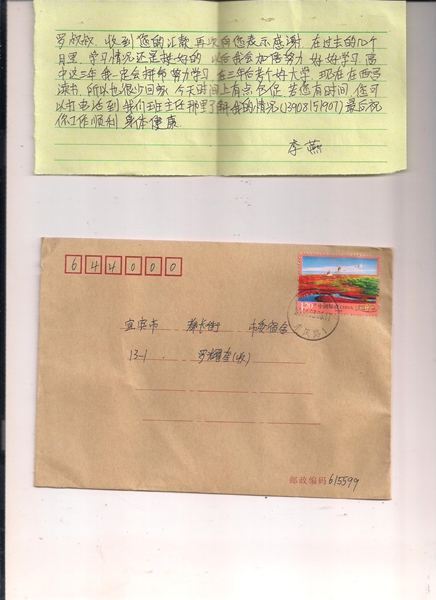 罗叔叔，收到您的汇款，再次向您表示感谢，在过去的几个
月里，学习情况还是挺好的，以后我会加倍努力，好好学习。高
中这三年我一定会拼命努力学习，在三年后考个好大学，现在在西昌
读书，所以也很少回家，今天时间上有点仓促，若您有时间，您可
以打电话到我们班主任那里了解我的情况(13908151907)最后祝
您工作顺利 身体健康
李燕
644000
中国邮政 CHINA
宜宾市 街 市委宿舍
13-1 罗 (收)
邮政编码 615599